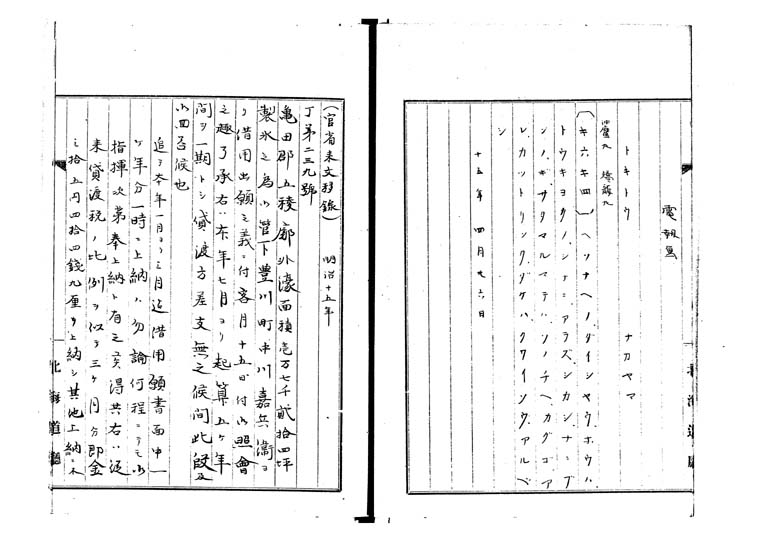 電報写
トキトウ
ナカヤマ
(キ六キ四一)ヘソナヘノダイシヤウホウハ
トウキヨクノシナニアラズシカシナニブ
ンノギサタマルマデハソノチヘカグゴア
レカツトリシダケハクワイソウアルベ
シ
十五年 四月廿六日
(官省来文移録)
明治十五年
丁第二三九號
亀田郡五稜廓外濠面積壱万七千貳拾四坪
製氷之為メ管下豊川町中川嘉兵衛ヨ
リ借用出願之義ニ付客月十五日付御照會
之趣了承右ハ本年七月ヨリ起算五ヶ年
間ヲ一期トシ貸渡方差支無之候間此段及
御回答候也
追テ本年一月ヨリ三月迄借用願書面中一
ヶ年分一時ニ上納ハ勿論何程ニテモ御
指揮次第奉上納ト有之
来貸渡税ノ比例ヲ以テ三ヶ月分即金
三拾五円四拾四錢九厘ヲ上納シ其他上納ニ不
北海道廳
北海道廳